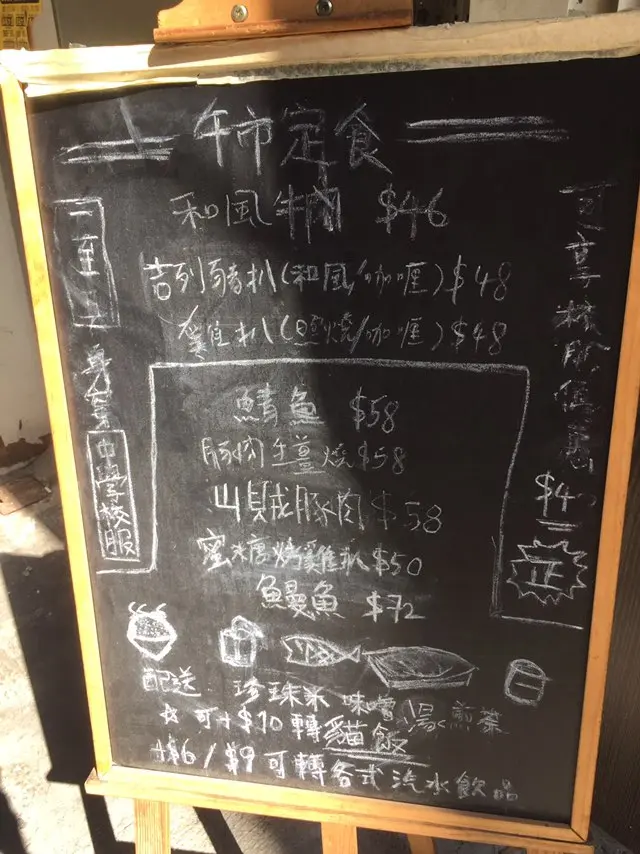 午市定食
和風牛肉 $46
吉列豬扒(和風/咖喱)$48
雞扒(照燒/咖喱)$48
鯖魚 $58
豚肉生薑燒$58
山賊豚肉$58
蜜糖燒雞扒$50
鰻魚 $72
一至五
身穿中學校服
可享校服優惠
$40
正
配送 珍珠米 味噌湯 煎茶
☆可+$10轉貓飯
+$6/$9可轉各式汽水飲品